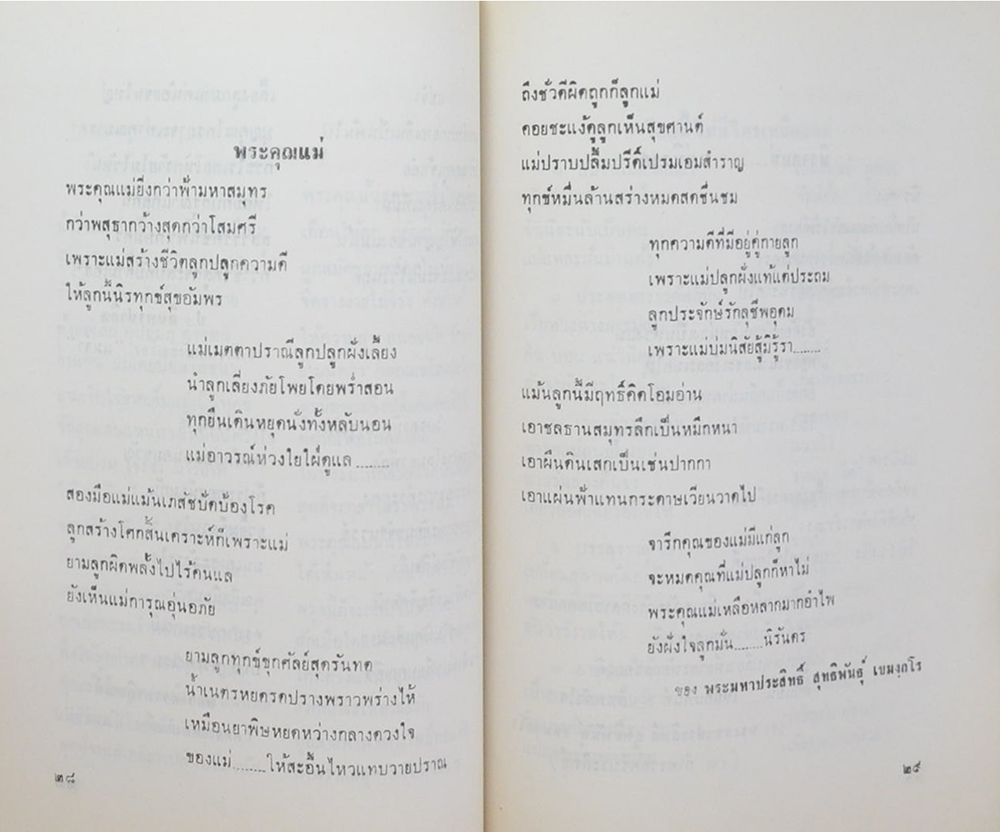 พระคุณแม่
พระคุณแม่ยิ่งกว่าฟ้ามหาสมุทร
กว่าพสุธากว้างสุดกว่าโสมศรี
เพราะแม่สร้างชีวิตลูกปลูกความดี
ให้ลูกนี้นิรทุกข์สุขอัมพร
แม่เมตตาปราณีลูกปลูกฝังเลี้ยง
นำลูกเลี่ยงภัยโพยโดยพร่ำสอน
ทุกยืนเดินหยุดนั่งทั้งหลับนอน
แม่อาวรณ์ห่วงใยใฝ่ดูแล ........
สองมือแม่แม้นเภสัชบัดบ้องโรค
ลูกสร้างโศกสิ้นเคราะห์ก็เพราะแม่
ยามลูกผิดพลั้งไปไร้คนแล
ยังเห็นแม่การุณอุ่นอภัย
ยามลูกทุกข์ขุกศัลย์สุดรันทด
น้ำเนตรหยดรดปรางพราวพร่างไห้
เหมือนยาพิษหยดหว่างกลางดวงใจ
ของแม่........ให้สะอื้นไหวแทบวายปราณ
๒๘
ถึงชั่วดีผิดถูกก็ลูกแม่
คอยชะแง้ดูลูกเห็นสุขศานต์
แม่ปราบปลื้มปรีดิ์เปรมเอมสำราญ
ทุกข์หมื่นล้านสร่างหมดสดชื่นชม
ทุกความดีที่มีอยู่คู่กายลูก
เพราะแม่ปลูกฝังแท้แต่ประถม
ลูกประจักษ์รักสุชีพอุดม
เพราะแม่บ่มนิสัยสู้มิรู้รา........
แม้นลูกนี้มีฤทธิ์คิดโอมอ่าน
เอาชลธานสมุทรลึกเป็นหมึกหนา
เอาผืนดินเสกเป็นเช่นปากกา
เอาแผ่นฟ้าแทนกระดาษเวียนวาดไป
จารึกคุณของแม่มีแก่ลูก
จะหมดคุณที่แม่ปลูกก็หาไม่
พระคุณแม่เหลือหลากมากอำไพ
ยังฝังใจลูกมั่น........นิรันดร
ของ พระมหาประสิทธิ์ สุทธิพันธุ์ เขมงฺกโร
๒๙